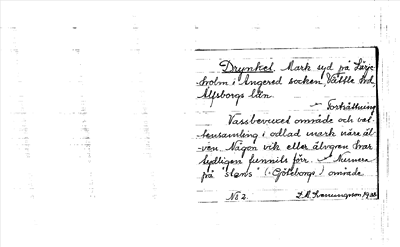 Drynket. Mark syd på Lärje-
holm i Angered socken, Vättle hd,
Älfsborgs län.
Fortsättning
Vassbevuxet område och vat-
tensamling i odlad mark nära äl-
ven. Någon vik eller älvgren har
tydligen funnits förr. — Numera
på "stans" (: Göteborgs :) område
No 2.